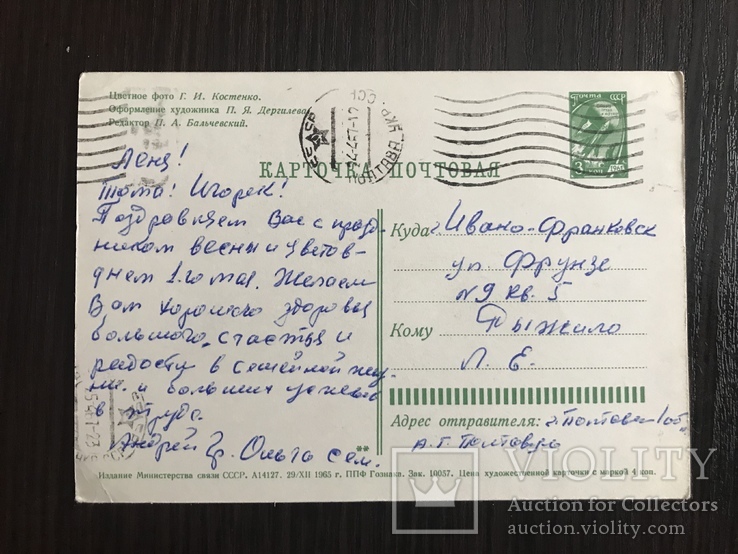 Цветное фото Г. И. Костенко.
Оформление художника П. Я. Дергилева
Редактор П. А. Бальчевский.
ПОЧТА СССР
КАРТОЧКА ПОЧТОВАЯ
Леня!
Тома! Игорек!
Поздравляем Вас с празд-
ником весны и цветов-
днем 1-го мая. Желаем
Вам хорошего здоровья
большого, счастья и
радости в семейной жиз-
ни. и больших успехов
в труде.
Андрей Гр. Ольга сем.
Куда г. Ивано-Франковск
ул. Фрунзе
№ 9 кв. 5
Кому Рыжило
Л. Е.
Адрес отправителя: г. Полтава-1
А. Г.
**
Издание Министерства связи СССР. А14127. 29/XII 1965 г. ППФ Гознака. Зак. 10057. Цена художественной карточки с маркой 4 коп.
VIOLITY
Auction for Collectors
auction.violity.com